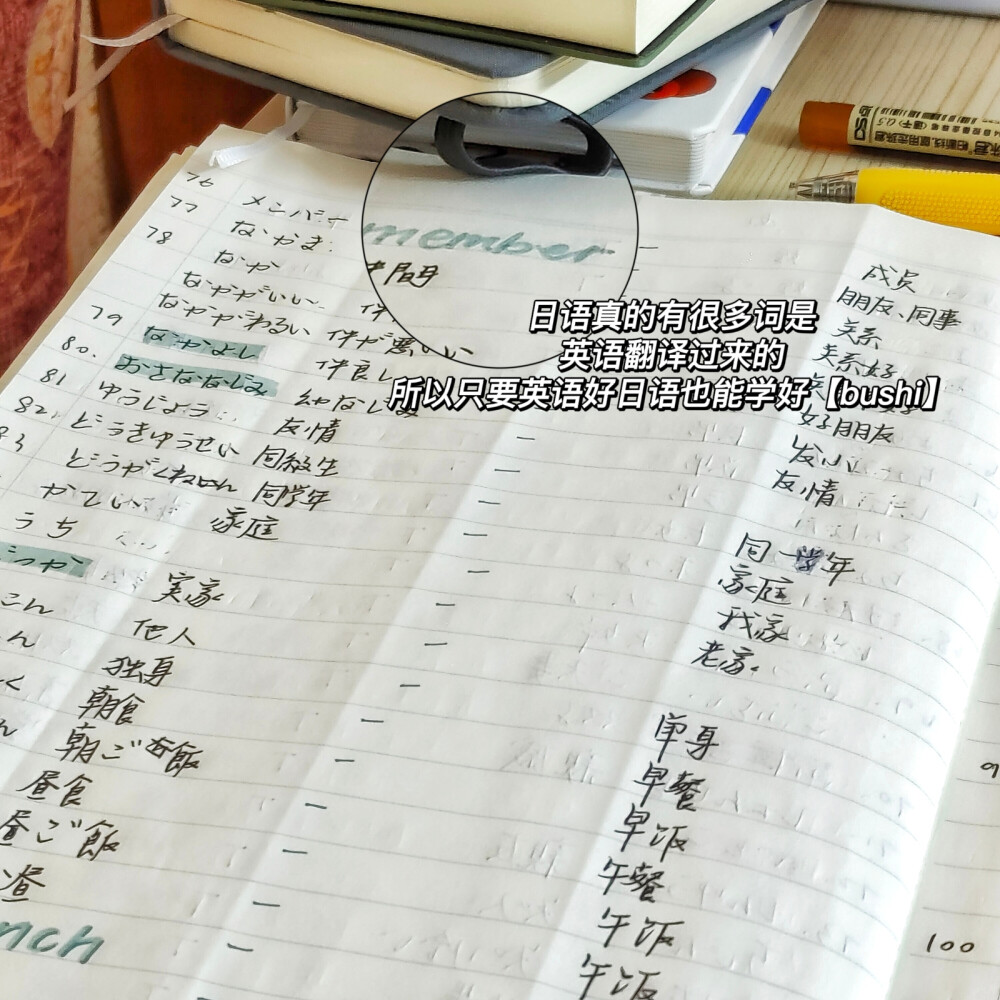 76 メンバー member 成员
77 なかま 仲間 朋友、同事
78 なか 关系
なかがいい 关系好
なかがわるい 仲が悪い
79 なかよし 仲良し 好朋友
80. おさななじみ 幼なじみ 发小
81 ゆうじょう 友情 友情
82. どうきゅうせい 同級生
どうがくねん 同学年 同一学年
かてい 家庭 家庭
うち 我家
実家 老家
他人
独身 単身
朝食 早餐
朝ご飯 早饭
昼食 午餐
昼ご飯 午饭
昼 午饭
nch
100
日语真的有很多词是
英语翻译过来的
所以只要英语好日语也能学好【bushi】